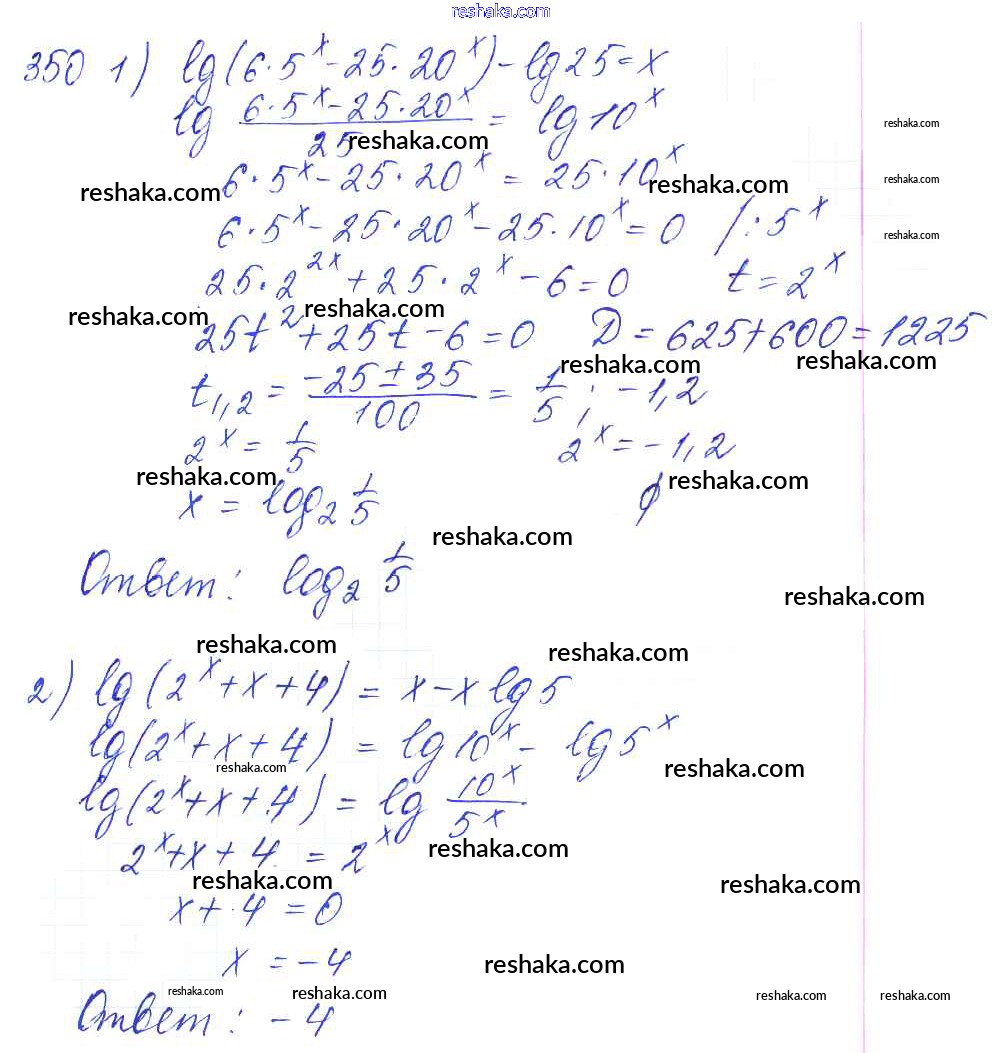 reshaka.com
350 1) lg(6·5^x - 25·20^x) - lg25 = x
lg (6·5^x - 25·20^x)/25 = lg10^x
reshaka.com
reshaka.com
6·5^x - 25·20^x = 25·10^x
reshaka.com reshaka.com reshaka.com
6·5^x - 25·20^x - 25·10^x = 0 /:5^x
reshaka.com
25·2^2x + 25·2^x - 6 = 0 t = 2^x
reshaka.com reshaka.com
25t^2 + 25t - 6 = 0 D = 625 + 600 = 1225
reshaka.com reshaka.com
t1,2 = (-25 ± 35)/100 = 1/5; -1,2
2^x = 1/5 2^x = -1,2
reshaka.com reshaka.com
x = log2 1/5 ∅
reshaka.com
Ответ: log2 1/5
reshaka.com
reshaka.com reshaka.com
2) lg(2^x + x + 4) = x - x lg5
lg(2^x + x + 4) = lg10^x - lg5^x
reshaka.com reshaka.com
lg(2^x + x + 4) = lg 10^x/5^x
2^x + x + 4 = 2^x
reshaka.com
reshaka.com reshaka.com
x + 4 = 0
x = -4
reshaka.com
reshaka.com reshaka.com reshaka.com reshaka.com
Ответ: -4